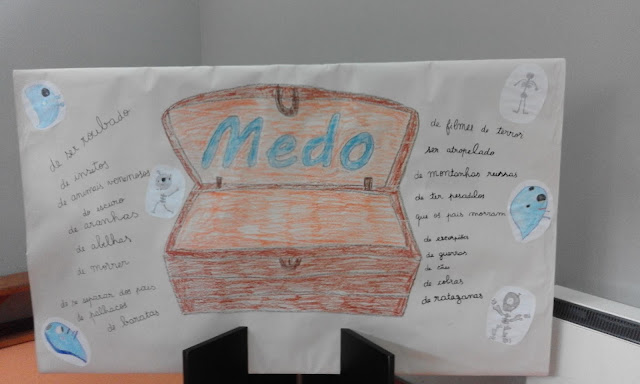 Medo
de ser roubado
de insetos
de animais venenosos
do escuro
de aranhas
de abelhas
de morrer
de se separar dos pais
de palhaços
de baratas
de filmes de terror
ser atropelado
de montanhas russas
de ter pesadelos
que os pais morram
de escorpião
de guerras
de cão
de cobras
de ratazanas